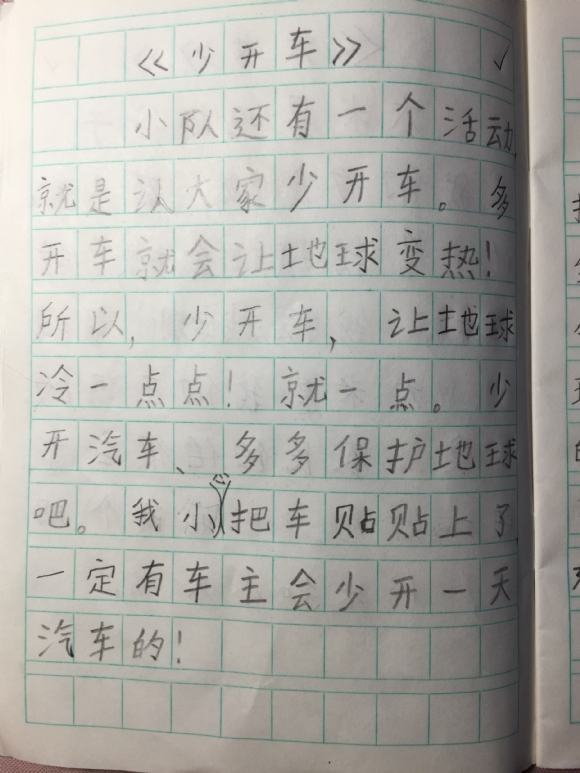 《少开车》
小队还有一个活动,
就是认大家少开车。多
开车就会让地球变热!
所以,少开车,让地球
冷一点点!就一点。少
开汽车、多多保护地球
吧。我小心把车贴贴上了,
一定有车主会少开一天
汽车的!